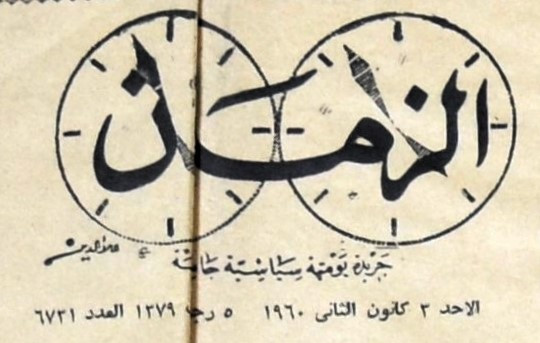 الزمان
جريدة يومية سياسية جامعة
الاحد ٣ كانون الثانى ١٩٦٠ ٥ رجب ١٣٧٩ العدد ٦٧٣١